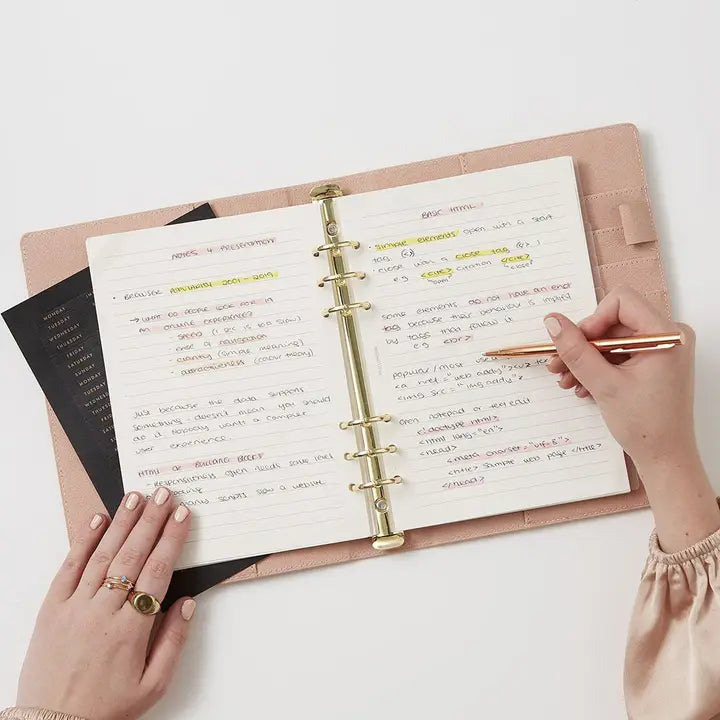 NOTES 4 PRESENTATION
• BROWSER POPULARITY 2001 - 2019
→ WHAT DO PEOPLE LOOK FOR IN
AN ONLINE EXPERIENCE?
- speed (1 sec is too slow)
- ease of navigation
- clarity (simple meaning)
- attractiveness (colour theory)
Just because the data supports
something - doesn't mean you should
do it. Nobody wants a
user experience.
HTML OF BUILDING BLOCKS
- Responsiveness often needs some level
many scripts slow a website
MONDAY
TUESDAY
WEDNESDAY
THURSDAY
FRIDAY
SATURDAY
SUNDAY
MONDAY
TUESDAY
WEDNESDAY
THURSDAY
FRIDAY
SATURDAY
SUNDAY
BASIC HTML
• simple elements open with a start
tag
• close with a close tag
e.g. <cite> citation </cite>
"open" "close"
Some elements do not have an end
tag because their behaviour is implied
by tags that follow it
e.g. <br>
popular/most
<a href = "web addy">
<img src = "img addy">
open notepad or text edit
<!doctype html>
<html lang="en">
<head>
<meta charset = "utf-8">
<title> Simple web page </title>
</head>